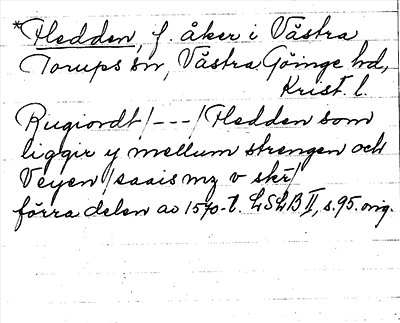 *Hedden, f. åker i Västra
Torups sn, Västra Göinge hd,
Krist. l.
Rugiordt /---/ Hedden som
liggir y mellum strengen och
Veyen /saais mz v skr/
förra delen av 1570-t. LSLB II, s. 95. orig.